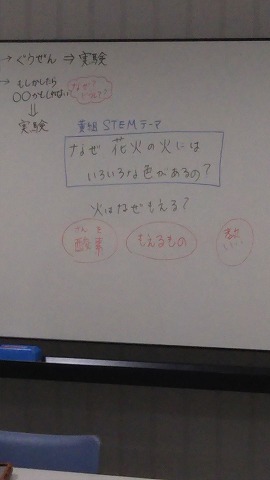 → ぐうぜん ⇒ 実験
→ もしかしたら
○○かもしれない
なぜ?
⇓
実験
STEMテーマ
なぜ 花火の火には
いろいろな色があるの?
火はなぜもえる?
さんそ
酸素
もえるもの